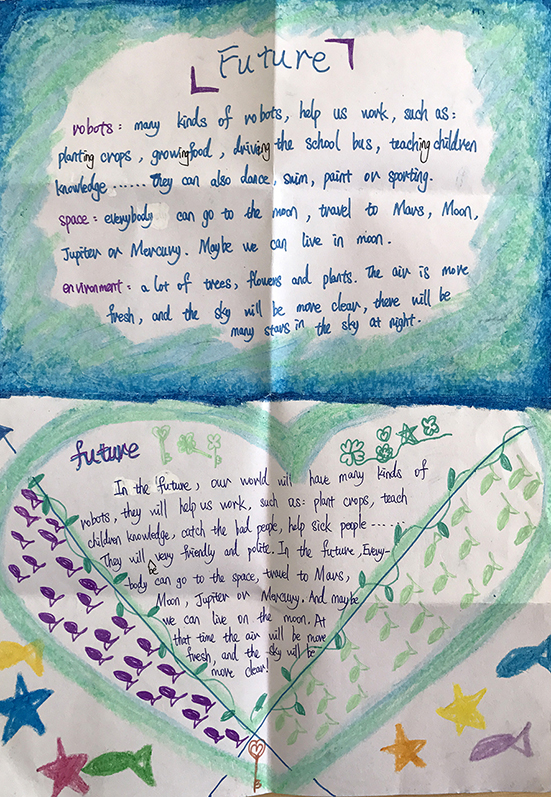 Future
robots: many kinds of robots, help us work, such as:
planting crops, growing food, driving the school bus, teaching children
knowledge ...... They can also dance, swim, paint or sporting.
space: everybody can go to the moon, travel to Mars, Moon,
Jupiter or Mercury. Maybe we can live in moon.
environment: a lot of trees, flowers and plants. The air is more
fresh, and the sky will be more clear, there will be
many stars in the sky at night.
future
In the future, our world will have many kinds of
robots, they will help us work, such as: plant crops, teach
children knowledge, catch the bad people, help sick people ......
They will be very friendly and polite. In the future, Every-
body can go to the space, travel to Mars,
Moon, Jupiter or Mercury. And maybe
we can live on the moon. At
that time the air will be more
fresh, and the sky will be
more clear!